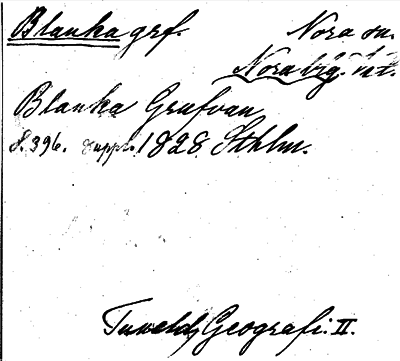 Blanka grf. Nora sn.
Nora bg. vt.
Blanka Grufvan
S. 396. uppl. 1828 Sthlm.
Tunelds Geografi. II.